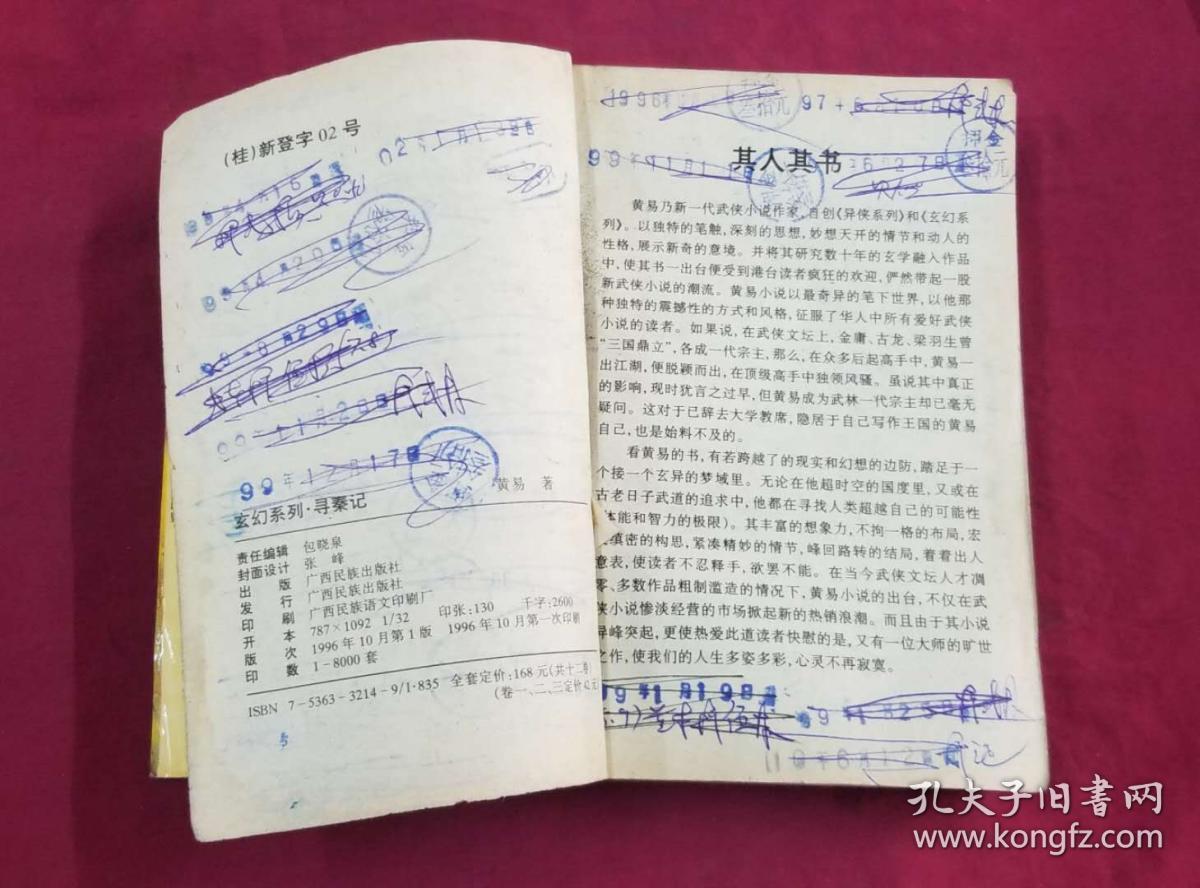 (桂)新登字 02 号
99年12月17日
玄幻系列·寻秦记
黄易 著
责任编辑 包晓泉
封面设计 张 峰
出 版 广西民族出版社
发 行 广西民族出版社
印 刷 广西民族语文印刷厂
开 本 787×1092 1/32 印张:130 千字:2600
版 次 1996年10月第1版 1996年10月第一次印刷
印 数 1-8000 套
ISBN 7-5363-3214-9/I·835 全套定价:168元(共十二卷)
(卷一、二、三定价42元)
其人其书
黄易乃新一代武侠小说作家,自创《异侠系列》和《玄幻系
列》。以独特的笔触,深刻的思想,妙想天开的情节和动人的
性格,展示新奇的意境。并将其研究数十年的玄学融入作品
中,使其书一出台便受到港台读者疯狂的欢迎,俨然带起一股
新武侠小说的潮流。黄易小说以最奇异的笔下世界,以他那
种独特的震撼性的方式和风格,征服了华人中所有爱好武侠
小说的读者。如果说,在武侠文坛上,金庸、古龙、梁羽生曾
“三国鼎立”,各成一代宗主,那么,在众多后起高手中,黄易一
出江湖,便脱颖而出,在顶级高手中独领风骚。虽说其中真正
的影响,现时犹言之过早,但黄易成为武林一代宗主却已毫无
疑问。这对于已辞去大学教席,隐居于自己写作王国的黄易
自己,也是始料不及的。
看黄易的书,有若跨越了的现实和幻想的边防,踏足于一
个接一个玄异的梦域里。无论在他超时空的国度里,又或在
古老日子武道的追求中,他都在寻找人类超越自己的可能性
体能和智力的极限)。其丰富的想象力,不拘一格的布局,宏
缜密的构思,紧凑精妙的情节,峰回路转的结局,着着出人
意表,使读者不忍释手,欲罢不能。在当今武侠文坛人才凋
零、多数作品粗制滥造的情况下,黄易小说的出台,不仅在武
侠小说惨淡经营的市场掀起新的热销浪潮。而且由于其小说
异峰突起,更使热爱此道读者快慰的是,又有一位大师的旷世
之作,使我们的人生多姿多彩,心灵不再寂寞。
孔夫子旧书网
www.kongfz.com